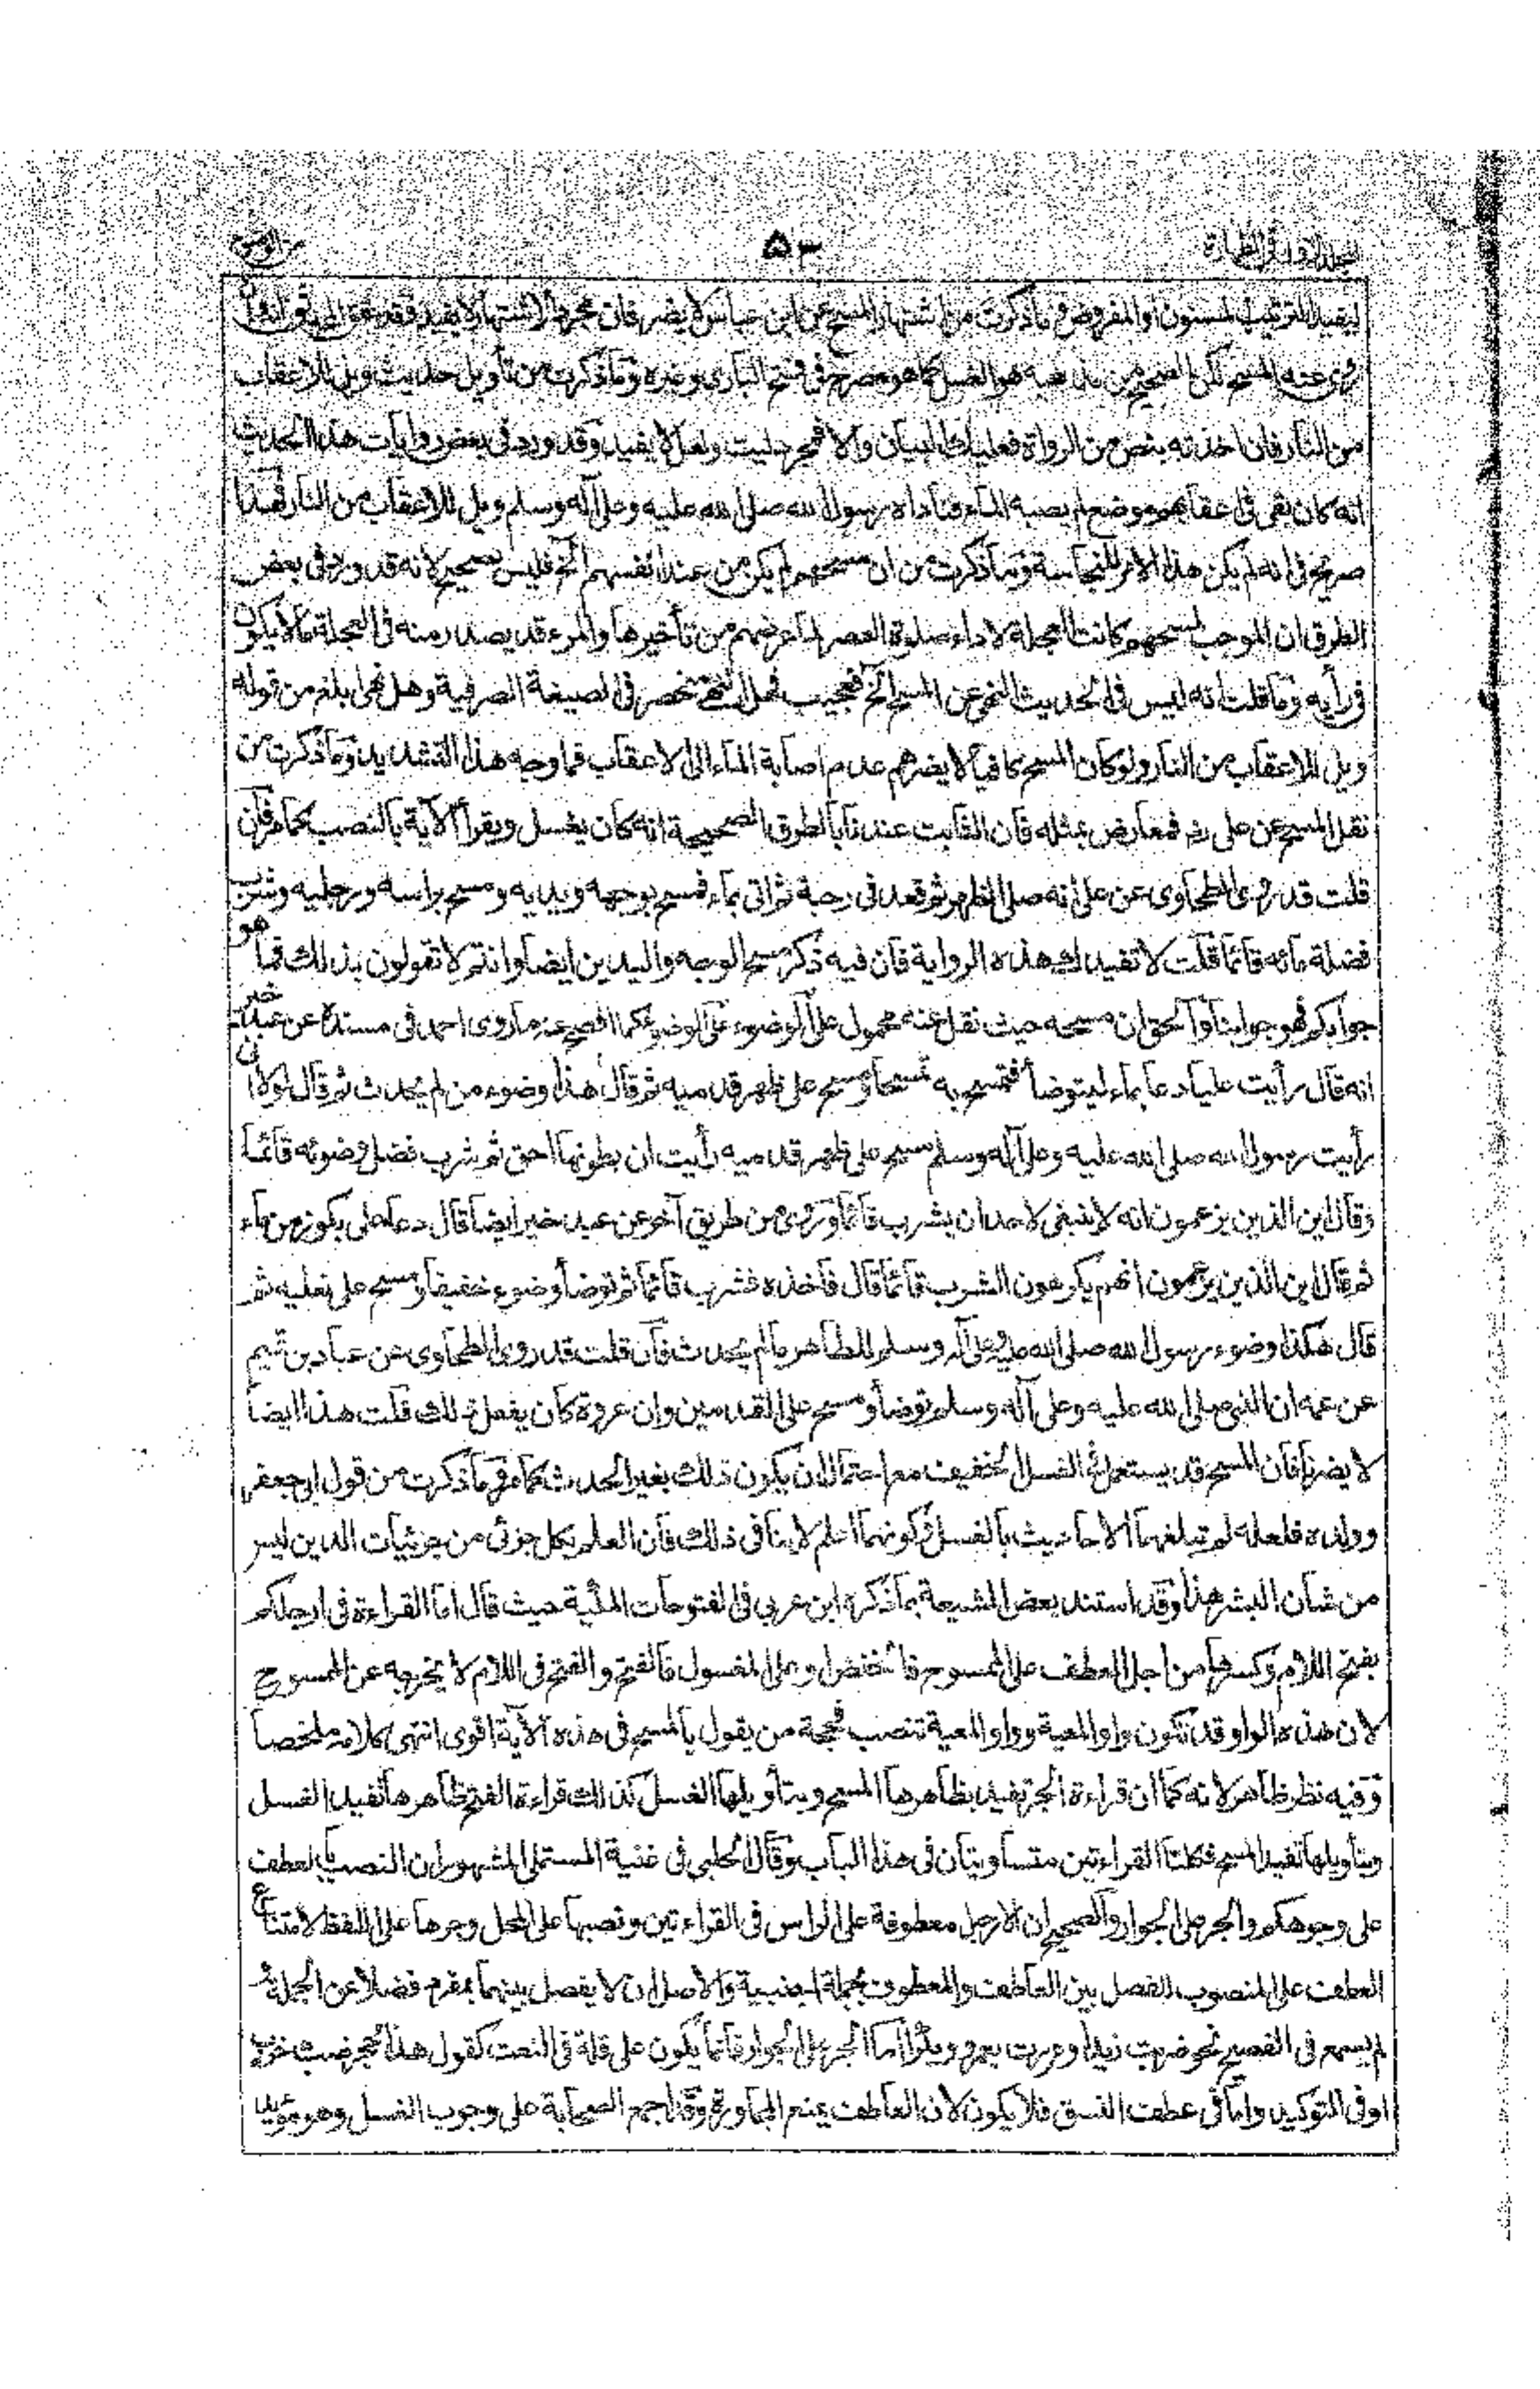 ۵۳
ليفيد الترتيب المسنون او المفروض وما ذكرت من اشتهار المسح عن ابن عباس لا يضر فان مجرد الاشتهار لا يفيد فقد
عنه المسح لكن الصحيح من مذهبه هو الغسل كما هو مصرح فى فتح البارى وغيره وما ذكرت من تأويل حديث ويل للاعقاب
من النار فان اخذته بنص من الرواة فعليك البيان والا فمجرد ليت ولعل لا يفيد وقد ورد فى بعض روايات هذا الحديث
انه كان بقى فى اعقابهم موضع لم يصبه الماء فناداه رسول الله صلى الله عليه وعلى آله وسلم ويل للاعقاب من النار فهذا
صريح فى انه لم يكن هذا الامر للنجاسة وما ذكرت من ان مسحهم لم يكن من عند انفسهم الخ فليس بصحيح لانه قد ورد فى بعض
الطرق ان الموجب لمسحهم كانت العجلة لاداء صلوة العصر لما عرضهم من تأخيرها والمرء قد يصدر منه فى العجلة ما لا يكون
فى رأيه وما قلت انه ليس فى الحديث النهى عن المسح الخ فعجيب فهل النهى تنحصر فى الصيغة الصرفية وهل نهى ابلغ من قوله
ويل للاعقاب من النار ولو كان المسح كافيا لا يضرهم عدم اصابة الماء الى الاعقاب فما وجه هذا التشديد وما ذكرت من
نقل المسح عن على رض فمعارض بمثله فان الثابت عندنا بالطرق الصحيحة انه كان يغسل ويقرأ الآية بالنصب كما مر فان
قلت قد روى الطحاوى عن على انه صلى الظهر ثم قعد فى رحبة ثم اتى بماء فمسح بوجهه ويديه ومسح براسه ورجليه وشرب
فضلة مائه قائما قلت لا تفيدك هذه الرواية فان فيه ذكر مسح الوجه واليدين ايضا وانتم لا تقولون بذلك فما هو
جوابكم فهو جوابنا والحق ان مسحه حيث نقل عنه محمول على الوضوء على الوضوء كما افصح عنه ما روى احمد فى مسنده عن عبد خير
انه قال رأيت عليا دعا بماء ليتوضأ فتمسح به تمسحا ومسح على ظهر قدميه ثم قال هذا وضوء من لم يحدث ثم قال لولا انى
رأيت رسول الله صلى الله عليه وعلى آله وسلم مسح على ظهر قدميه رأيت ان بطونهما احق ثم شرب فضل وضوئه قائما
وقال اين الذين يزعمون انه لا ينبغى لاحد ان يشرب قائما وروى من طريق آخر عن عبد خير ايضا قال دعا على بكوز من ماء
ثم قال اين الذين يزعمون انهم يكرهون الشرب قائما قال فاخذه فشرب قائما ثم توضأ وضوء خفيفا ومسح على نعليه ثم
قال هكذا وضوء رسول الله صلى الله عليه وعلى آله وسلم للطاهر ما لم يحدث فان قلت قد روى الطحاوى عن عباد بن تميم
عن عمه ان النبى صلى الله عليه وعلى آله وسلم توضأ ومسح على القدمين وان عروة كان يفعل ذلك قلت هذا ايضا
لا يضرنا فان المسح قد يستعمل فى الغسل الخفيف مع احتمال ان يكون ذلك بغير الحدث كما مر وما ذكرت من قول ابى جعفر
وولده فلعله لم تبلغهما الاحاديث بالغسل وكونهما اعلم لا ينافى ذلك فان العلم بكل جزئى من جزئيات الدين ليس
من شأن البشر هذا وقد استند بعض الشيعة بما ذكره ابن عربى فى الفتوحات المكية حيث قال اما القراءة فى ارجلكم
بفتح اللام وكسرها من اجل العطف على الممسوح فالخفض او على المغسول فالفتح والفتح فى اللام لا يخرجه عن الممسوح
لان هذه الواو قد تكون واو المعية وواو المعية تنصب فحجة من يقول بالمسح فى هذه الآية اقوى انتهى كلامه ملخصا
وفيه نظر ظاهر لانه كما ان قراءة الجر تفيد بظاهرها المسح وبتأويلها الغسل كذلك قراءة الفتح ظاهرها تفيد الغسل
وبتأويلها تفيد المسح فكلتا القراءتين متساويتان فى هذا الباب وقال الحلبى فى غنية المستملى المشهور ان النصب بالعطف
على وجوهكم والجر على الجوار والصحيح ان الارجل معطوفة على الراس فى القراءتين ونصبها على المحل وجرها على اللفظ لامتناع
العطف على المنصوب للفصل بين العاطف والمعطوف بجملة اجنبية والاصل ان لا يفصل بينهما بمفرد فضلا عن الجملة
لم يسمع فى الفصيح نحو ضربت زيدا ومررت بعمرو وبكرا اما الجر على الجوار فانما يكون على قلة فى النعت كقول هذا جحر ضب خرب
او فى التوكيد واما فى عطف النسق فلا يكون لان العاطف يمنع المجاورة وقد اجمع الصحابة على وجوب الغسل وهو مؤيد